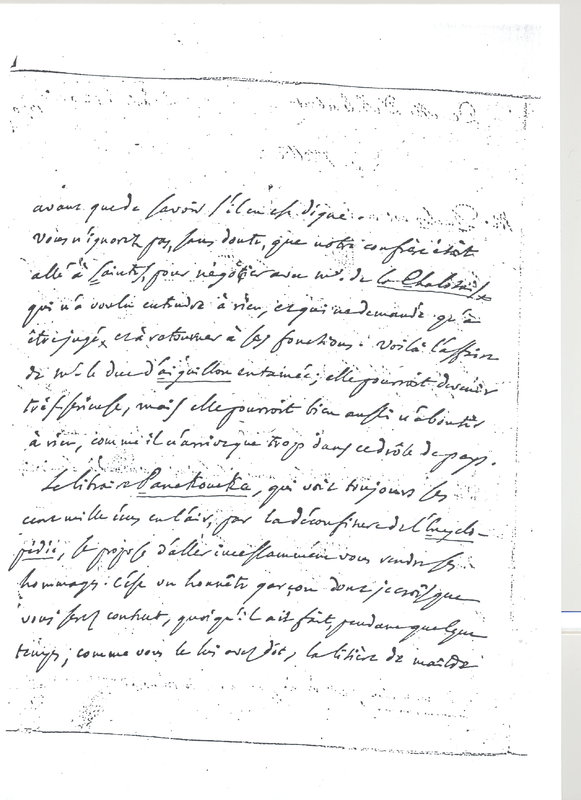 avant que de savoir s'il en est digne.
Vous n'ignorez pas, sans doute, que notre confrère étoit
allé à Saintes, pour négotier avec mr. de la Chalotais,
qui n'a voulu entendre à rien, et qui ne demande qu'à
être jugé, et à retourner à ses fonctions. Voilà l'affaire
de mr. le duc d'aiguillon entamée; elle pourroit devenir
très sérieuse, mais elle pourroit bien aussi n'aboutir
à rien, comme il n'arrive que trop dans ce drôle de pays.
Le libraire Panckoucke, qui voit toujours les
cent mille écus en l'air, par la déconfiture de l'Encyclo-
pédie, se propose d'aller incessamment vous rendre ses
hommages. C'est un honnête garçon dont je crois que
vous serez content, quoiqu'il ait fait, pendant quelque
temps, comme vous le lui avez dit, la litière de maître